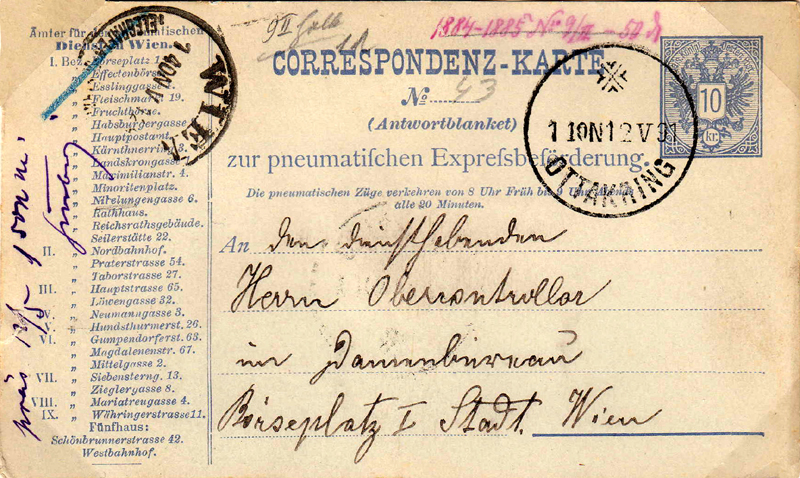 Ämter für den pneumatischen
Dienst in Wien.
I. Bez. Börseplatz 1.
„ Effectenbörse
„ Esslinggasse
„ Fleischmarkt 19.
„ Fruchtbörse.
„ Habsburgergasse
„ Hauptpostamt.
„ Kärnthnerring 3.
„ Landskrongasse
„ Maximilianstr. 4.
„ Minoritenplatz.
„ Nibelungengasse 6.
„ Rathhaus.
„ Reichsrathsgebäude.
„ Seilerstätte 22.
II. „ Nordbahnhof.
„ Praterstrasse 54.
„ Taborstrasse 27.
III. „ Hauptstrasse 65.
„ Löwengasse 32.
„ Neumanngasse 3.
V. „ Hundsthurmerst. 26.
VI. „ Gumpendorferst. 63.
„ Magdalenenstr. 67.
„ Mittelgasse 2.
VII. „ Siebensterng. 13.
„ Zieglergasse 8.
VIII. „ Mariatreugasse 4.
IX. „ Währingerstrasse 11.
Fünfhaus:
Schönbrunnerstrasse 42.
Westbahnhof.
WIEN
1884-1885 No 9/II - 50 kr
CORRESPONDENZ-KARTE
No 43
(Antwortblanket)
zur pneumatischen Expressbeförderung.
Die pneumatischen Züge verkehren von 8 Uhr Früh bis 9 Uhr Abends
alle 20 Minuten.
10
kr.
1 10N 12 V 91
OTTAKRING
An den diensthabenden
Herrn Obercontrollor
im Damenbureau
Börseplatz I Stadt. Wien
präs 12/5